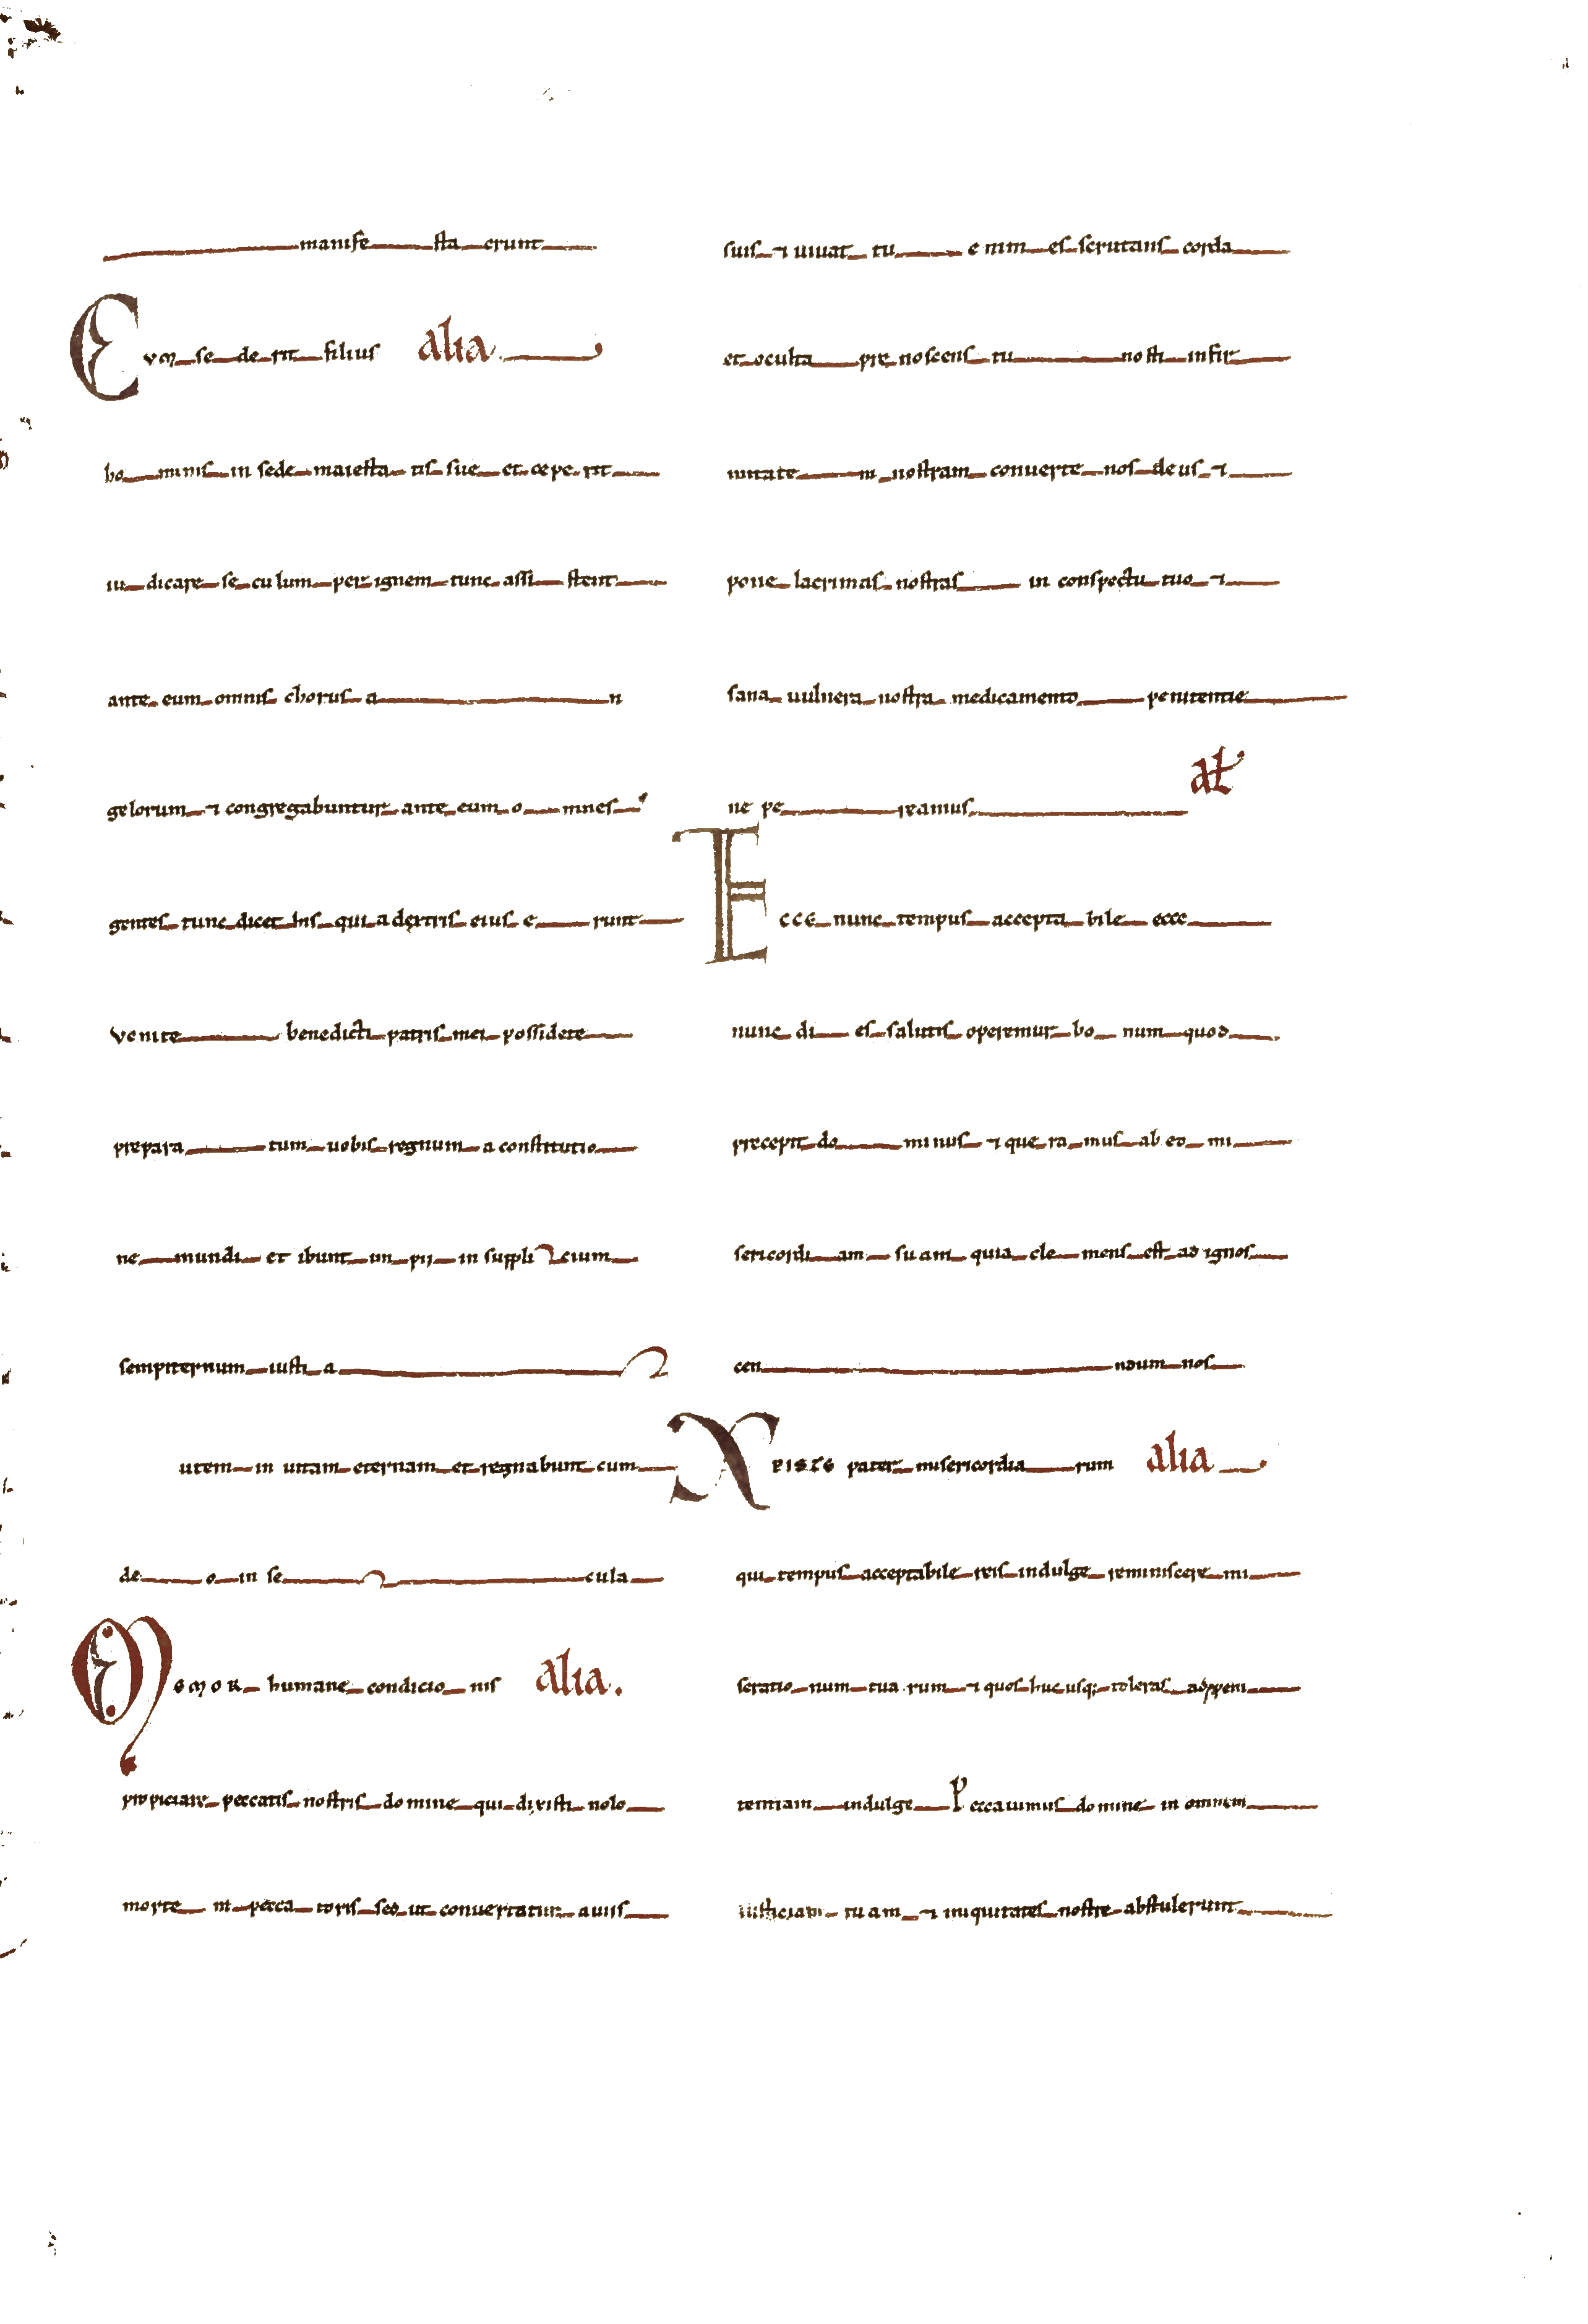 manife sta erunt
Cum se de rit filius alia.
ho minis in sede maiesta tis sue et cepe rit
iu dicare se cu lum per ignem tunc assi stent
ante eum omnis chorus a n
gelorum ⁊ congregabuntur ante eum o mnes
gentes tunc dicet his qui a dextris eius e runt
Venite benedicti patris mei possidete
prepara tum uobis regnum a constitutio
ne mundi et ibunt im pii in suppli cium
sempiternum iusti a
utem in uitam eternam et regnabunt cum
de o in se cula
Memor humane condicio nis alia.
propiciare peccatis nostris do mine qui dixisti nolo
morte m pecca toris sed ut conuertatur a uiis
suis ⁊ uiuat tu e nim es scrutans corda
et oculta pre noscens tu nosti infir
mitate m nostram conuerte nos de us ⁊
pone lacrimas nostras in conspectu tuo ⁊
sana uulnera nostra medicamento penitentie
ne pe reamus al
Ecce nunc tempus accepta bile ecce
nunc di es salutis operemur bo num quod
precepit do minus ⁊ que ra mus ab eo mi
sericordi am su am quia cle mens est ad ignos
cen ndum nos
Xriste pater misericordia rum alia
qui tempus acceptabile reis indulge reminiscere mi
seratio num tua rum ⁊ quos huc usq; toleras ad peni
tentiam indulge Peccauimus do mine in omnem
iusticiam tu am ⁊ iniquitates nostre abstulerunt